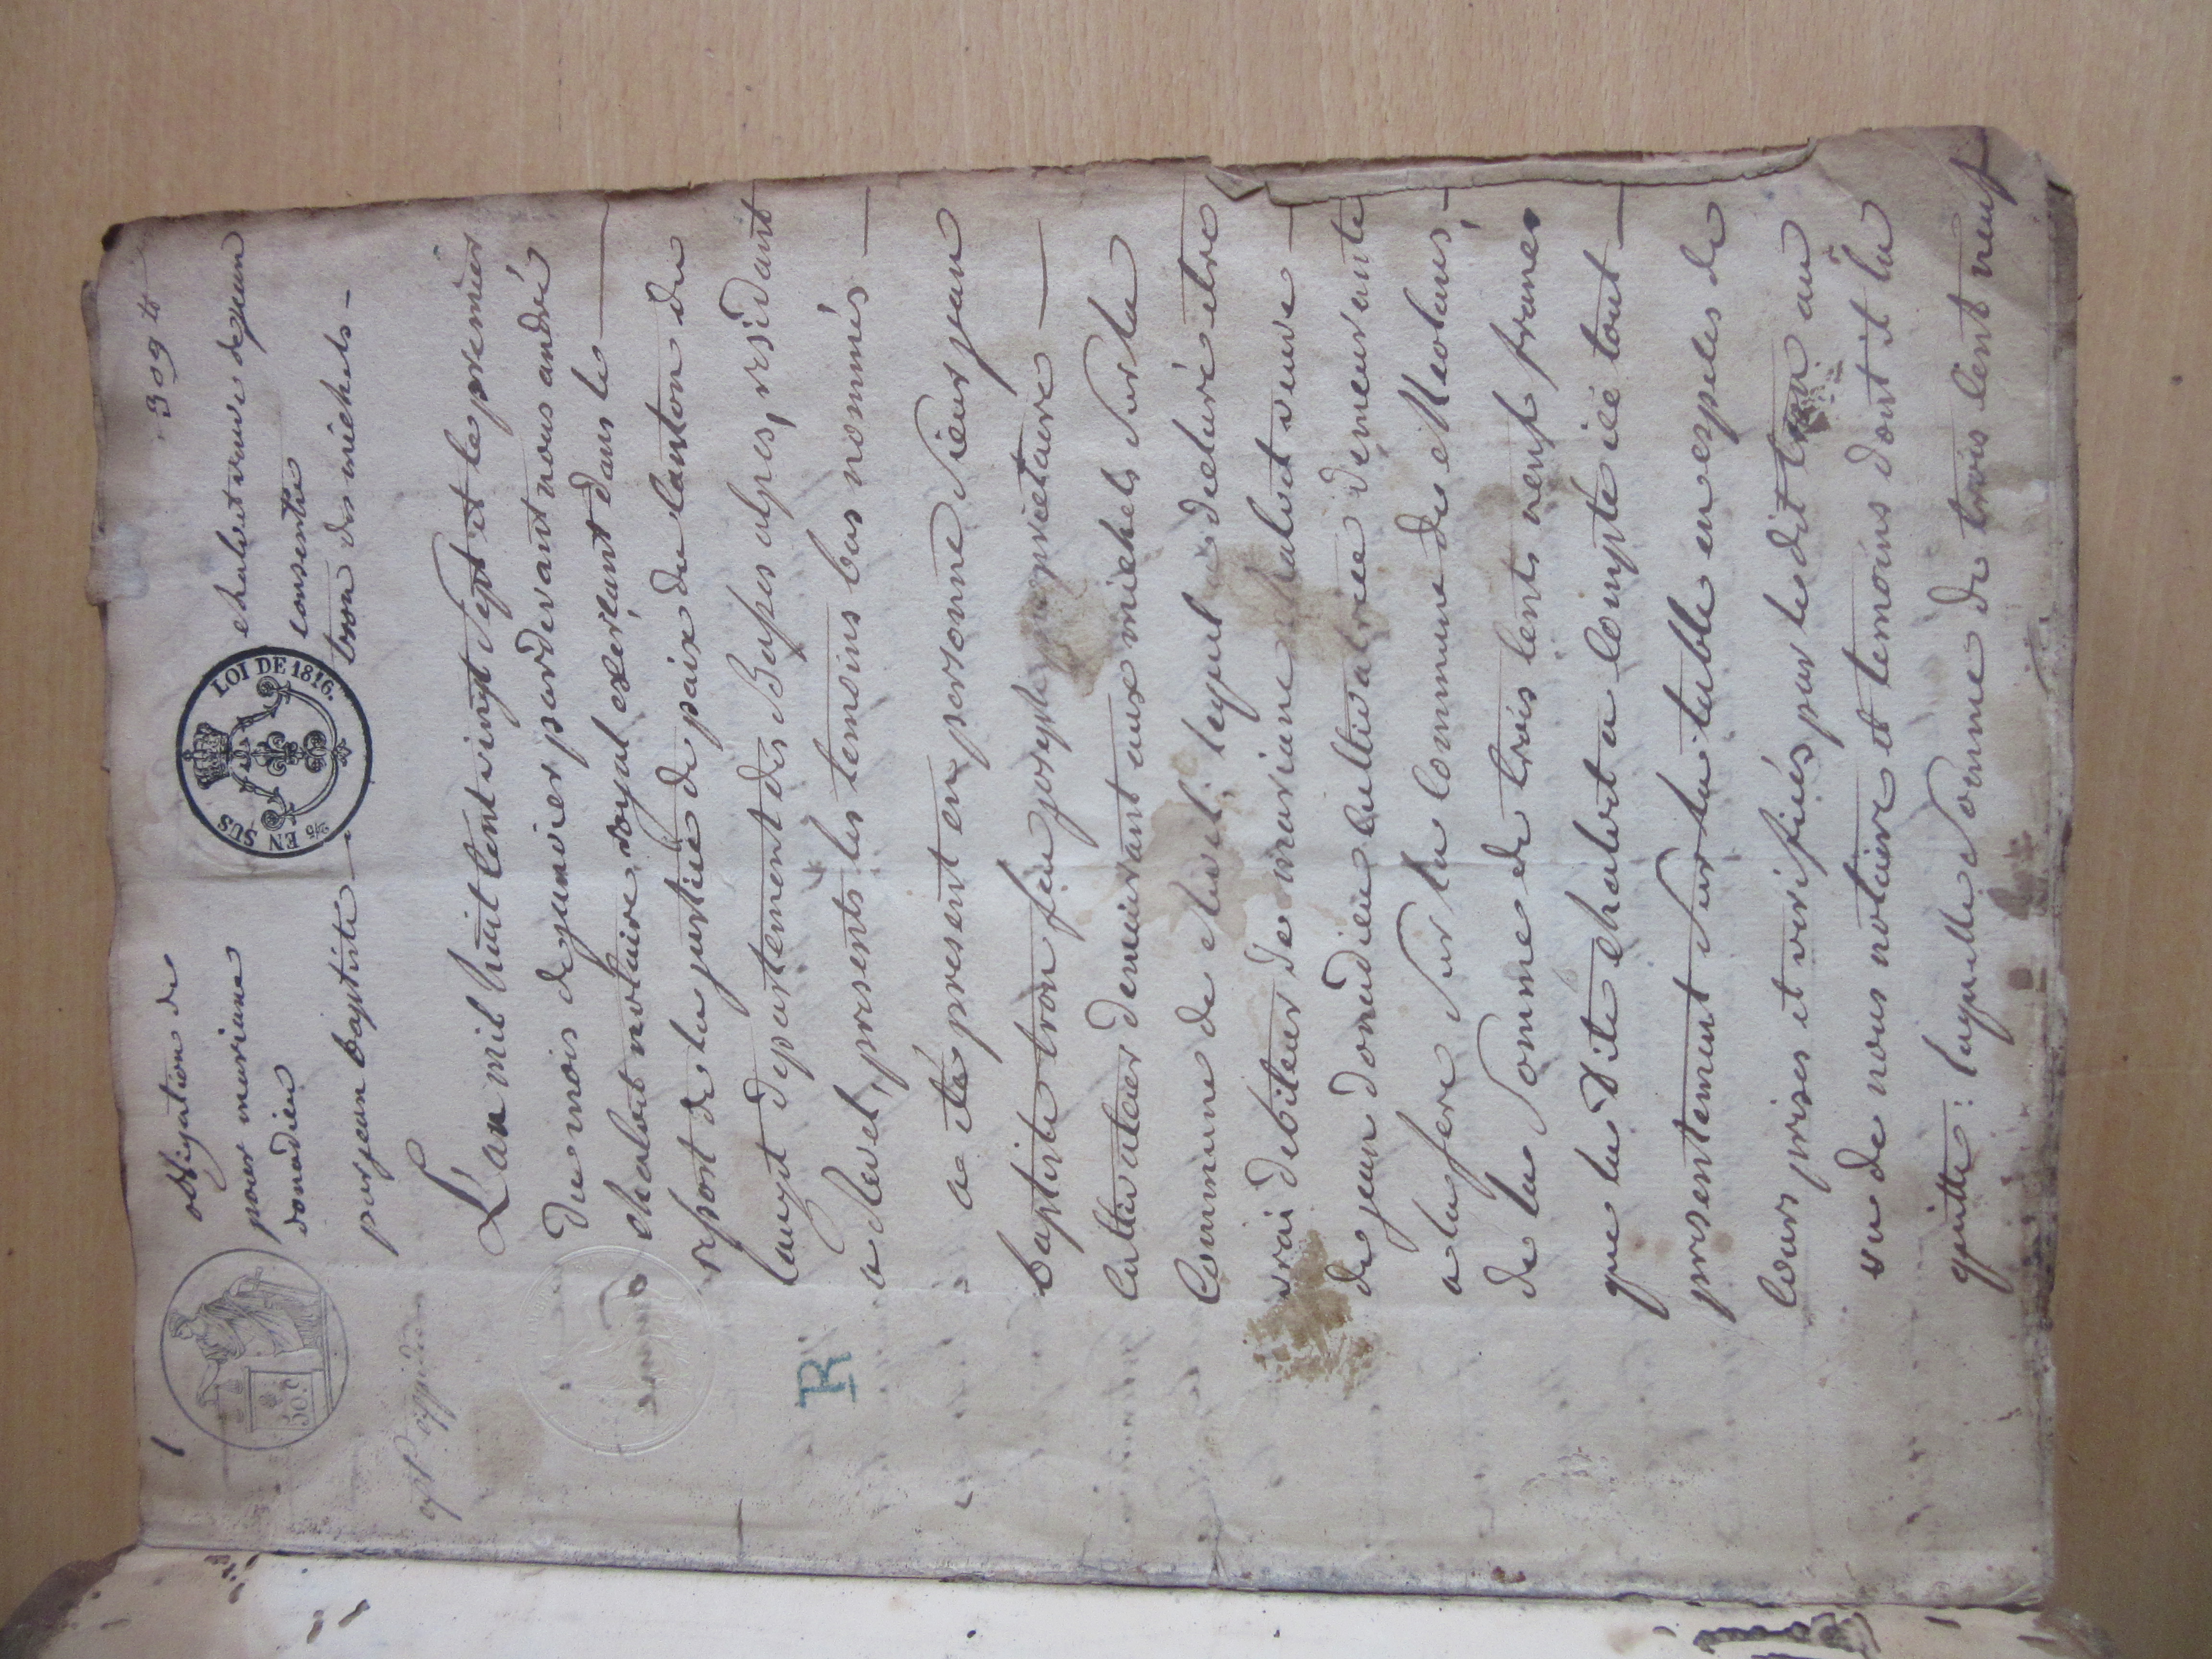 1
309 #
obligation de chabot veuve de jean
pour mariane donadieu consentie
par jean baptiste tron des michels -
LOI DE 1816.
2/5 EN SUS
50 c
expd
L'an mil huit cent vingt sept et le premier
du mois de janvier pardevant nous andré
chabot notaire royal exerçant dans le
ressort de la justice de paix du canton du
lauzet departement des Basses alpes, residant
a , presents les temoins bas nommés
a été present en personne Sieur jean
baptiste tron feu joseph proprietaire
cultivateur demeurant aux michels Sur la
Commune de lequel a declaré etre
vrai debiteur de mariane chabot veuve
de jean donadieu cultivatrice demeurante
a la fere Sur la commune de Meolans,
de la Somme de trois cents neuf francs
que la dite chabot a compté ici tout
presentement Sur la table en especes de
Cours prises et verifiés par le dit tron au
vu de nous notaire et temoins dont il la
quitte: laquelle Somme de trois cent neuf
R